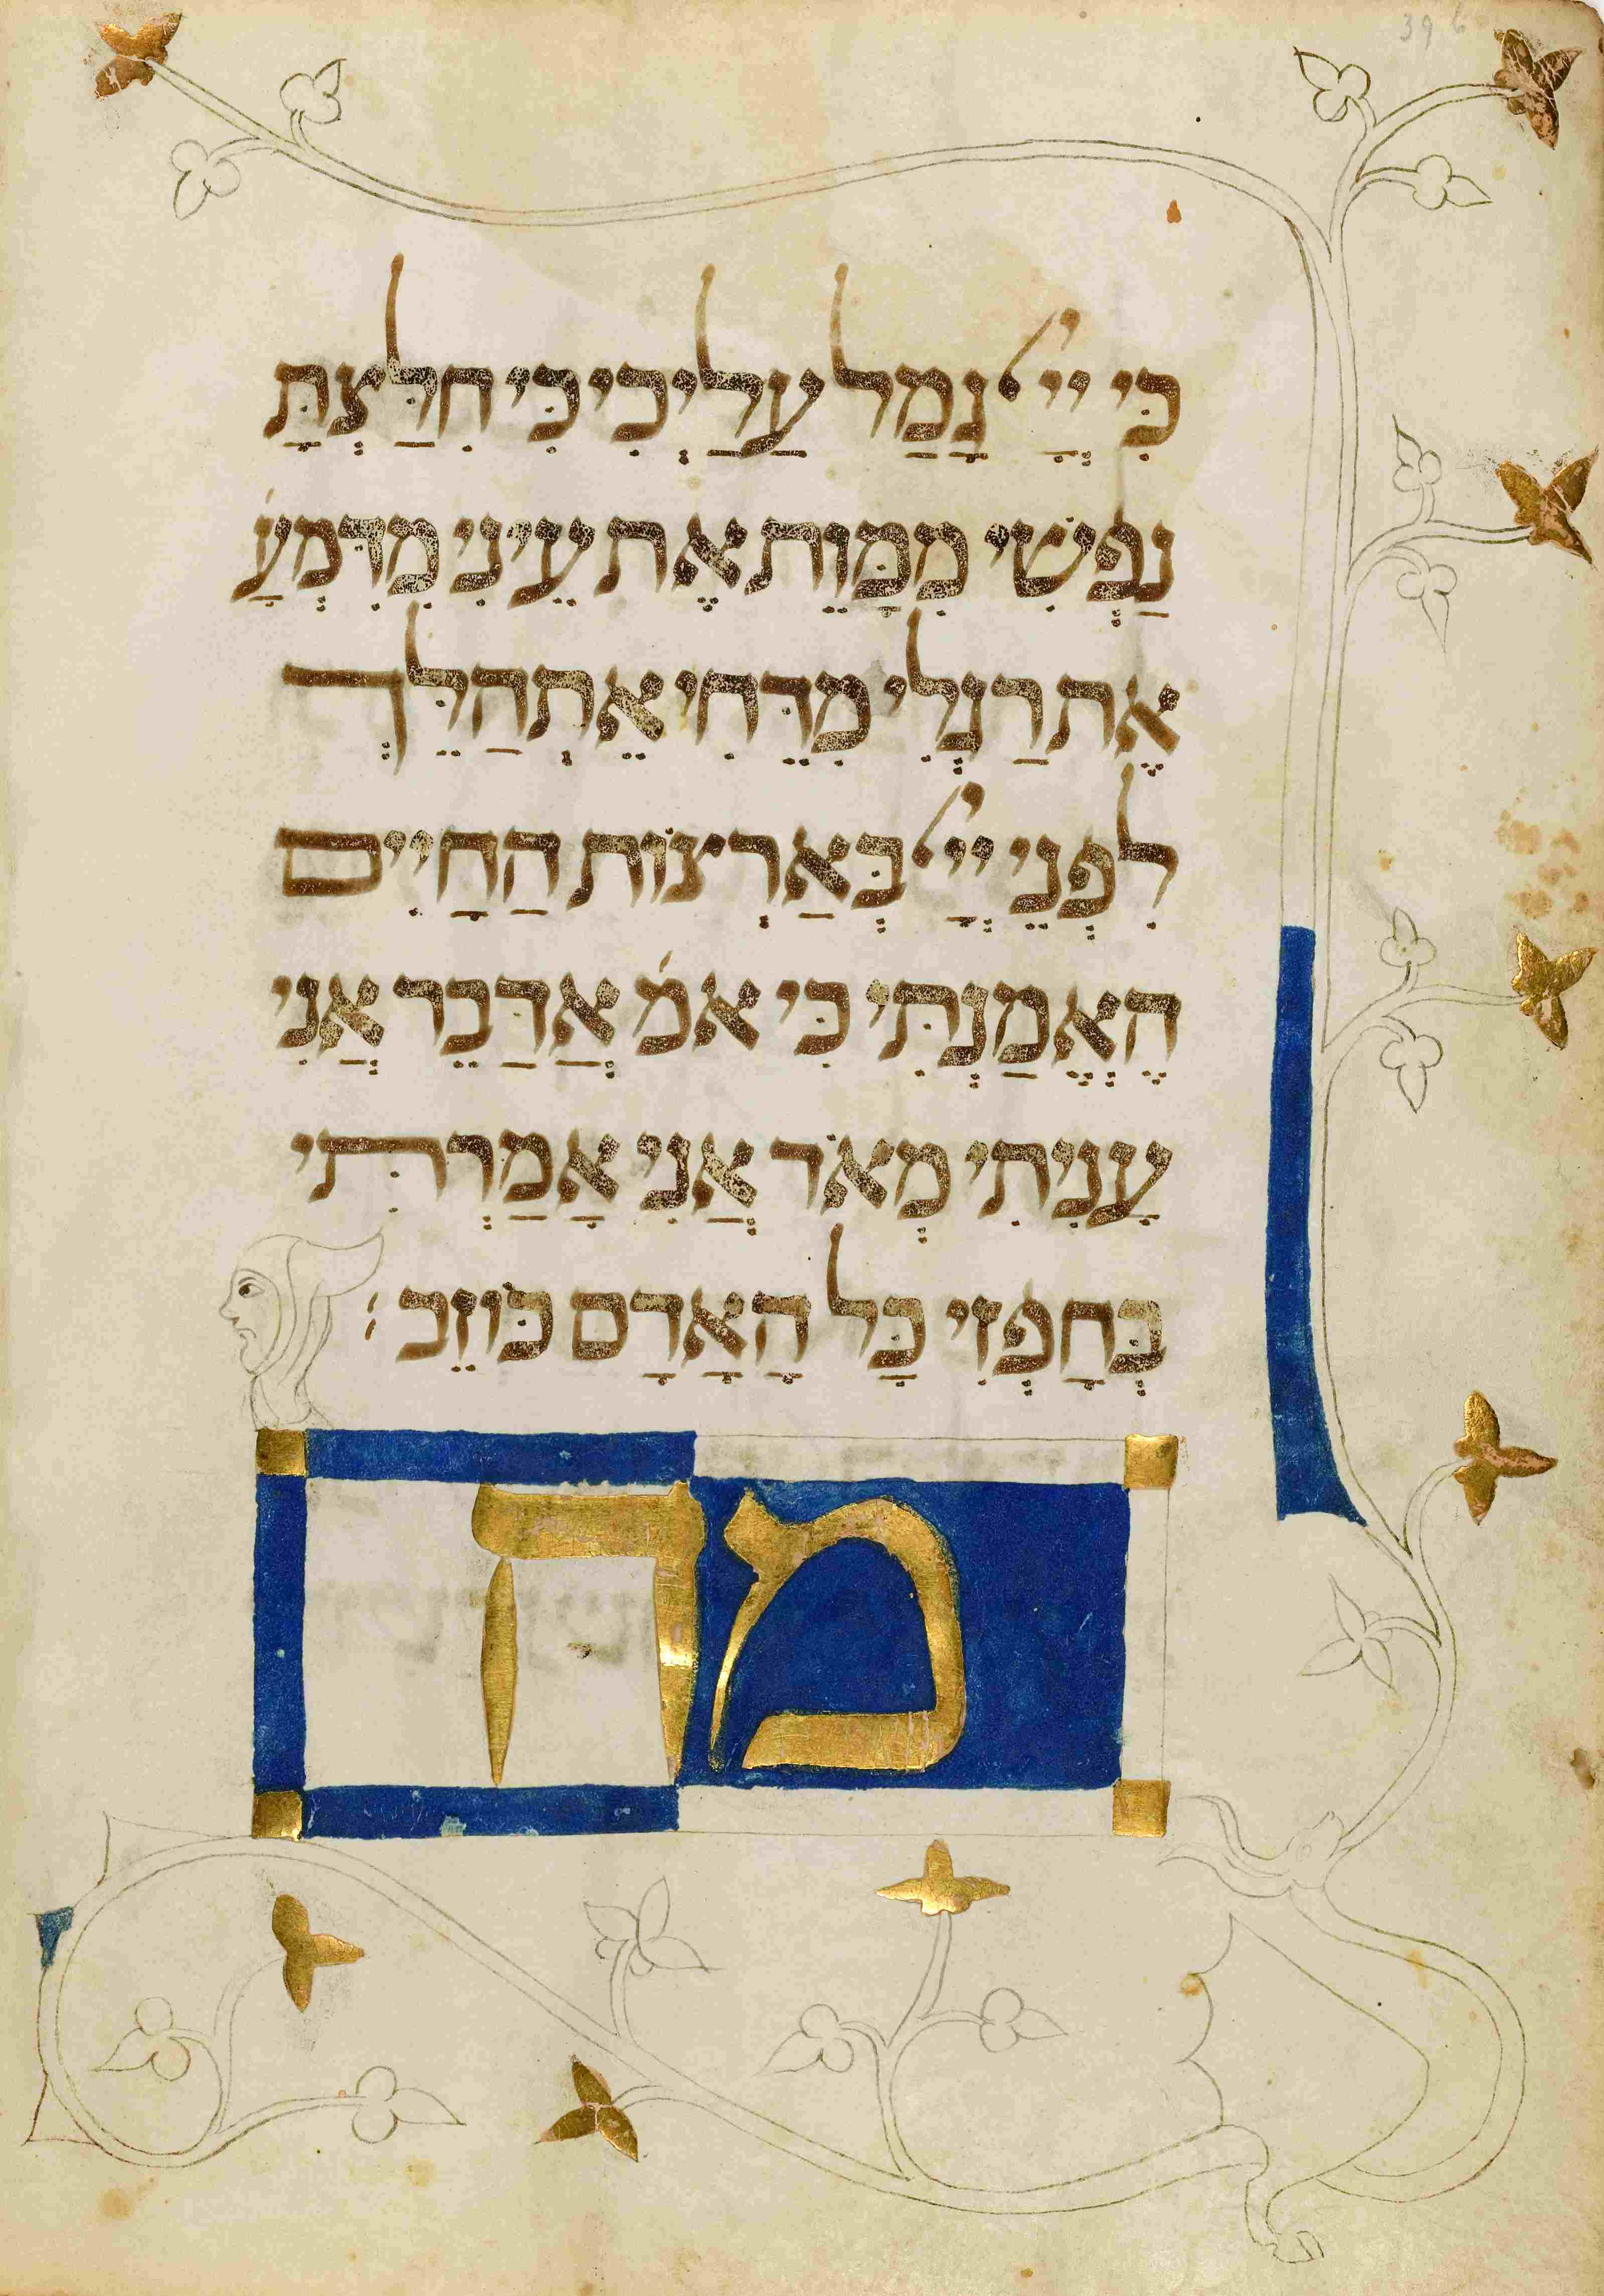 39 b
כִּי יְיָ גָמַל עַלַיְכִי כִּי חִלַּצְתָּ
נַפְשִׁי מִמָּוֵת אֶת עֵינִי מִדִּמְעָ׳
אֶת רַגְלִי מִדֵּחִי אֵתְהַלֵּךְ
לִפְנֵי יְיָ בְּאַרְצוֹת הַחַיִים
הֶאֱמַנְתִּי כִּי אמ׳ אֲדַבֵּר אֲנִי
עָנִיתִי מְאֹד אֲנִי אָמַרְתִּי
בְּחָפְזִי כָּל הָאָדָם כּוֹזֵב:
מה